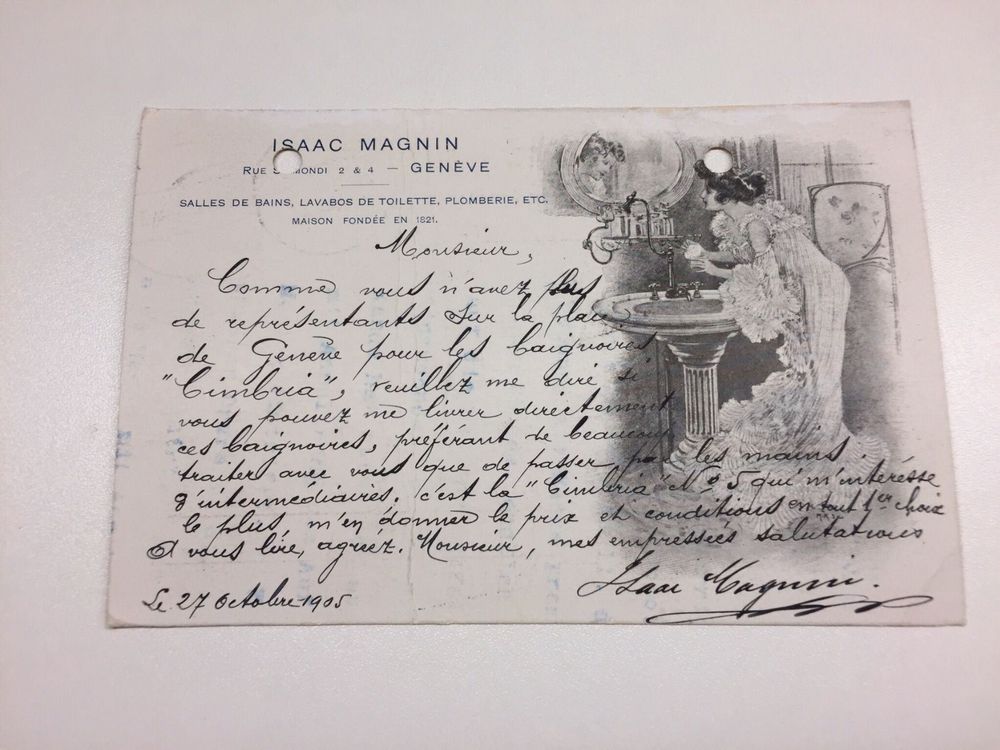 ISAAC MAGNIN
RUE SISMONDI 2 & 4 — GENÈVE
SALLES DE BAINS, LAVABOS DE TOILETTE, PLOMBERIE, ETC.
MAISON FONDÉE EN 1821.
Monsieur,
Comme vous n'avez plus
de représentants sur la place
de Genève pour les baignoires
"Cimbria", veuillez me dire si
vous pouvez me livrer directement
ces baignoires, préférant de beaucoup
traiter avec vous que de passer par les mains
d'intermédiaires. c'est la "Cimbria" No 5 qui m'intéresse
le plus, m'en donner le prix et conditions en tout 1er choix
A vous lire, agréez. Monsieur, mes empressées salutations
Isaac Magnin.
Le 27 Octobre 1905